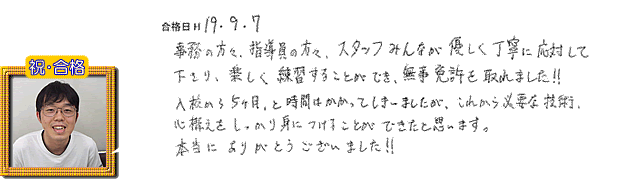 合格日 19.9.7
祝・合格
事務の方々、指導員の方々、スタッフみんなが優しく丁寧に応対して
下さり、楽しく練習することができ、無事免許を取れました!!
入校から5ヶ月、と時間はかかってしまいましたが、これから必要な技術、
心構えをしっかり身につけることができたと思います。
本当にありがとうございました!!